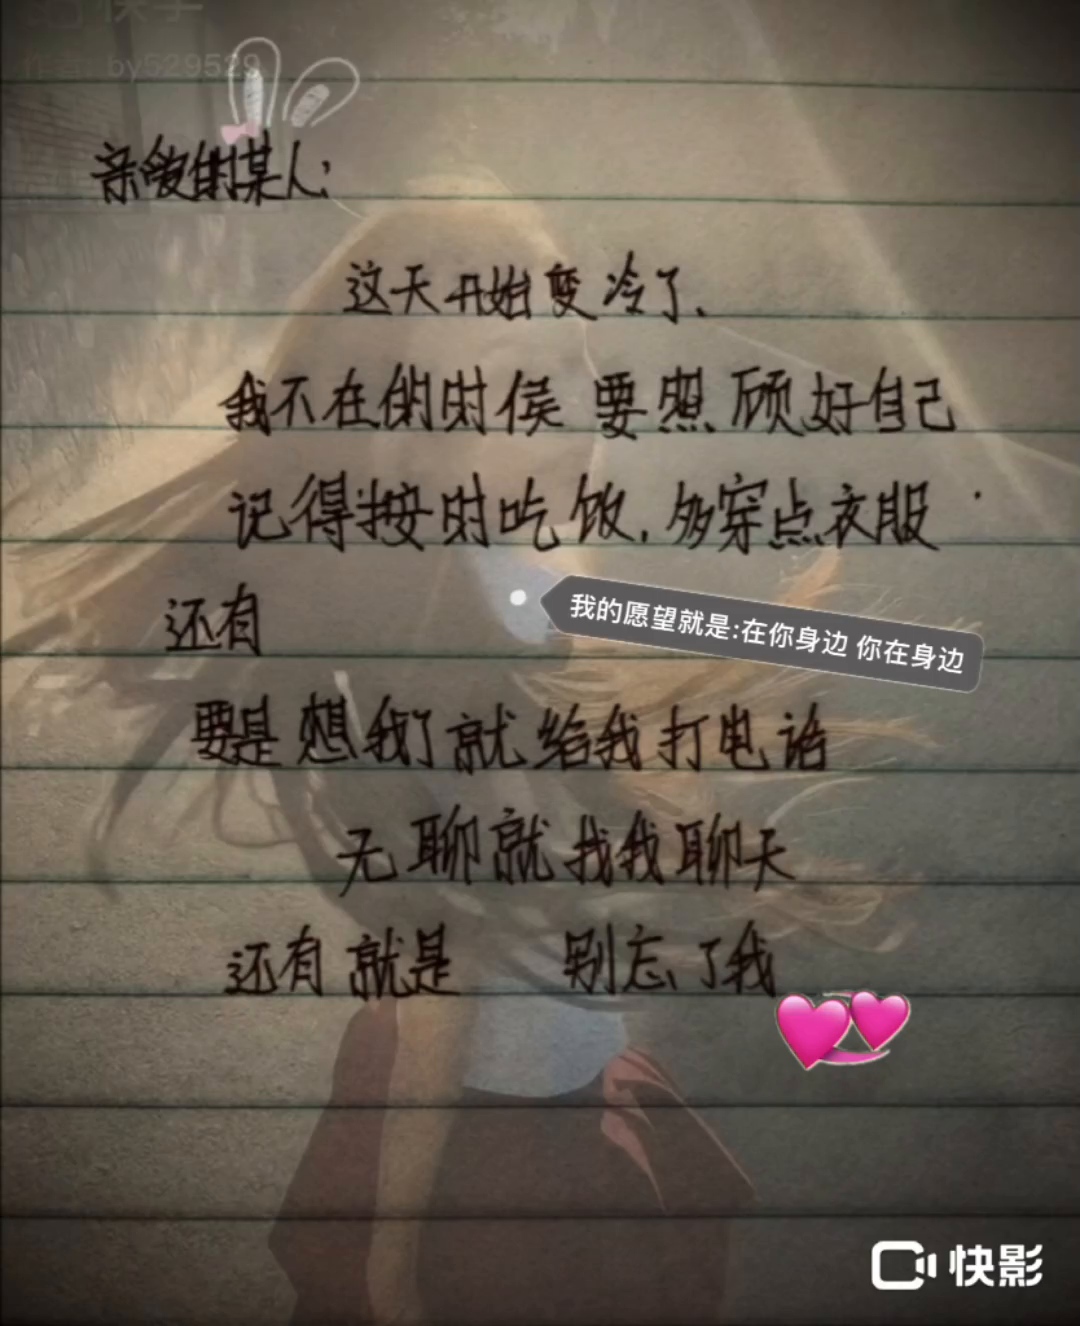 快手
作者: by529529
亲爱的某人:
这天开始变冷了.
我不在的时侯 要照顾好自己
记得按时吃饭. 多穿点衣服
还有
我的愿望就是:在你身边 你在身边
要是想我了就给我打电话
无聊就找我聊天
还有就是 别忘了我
快影